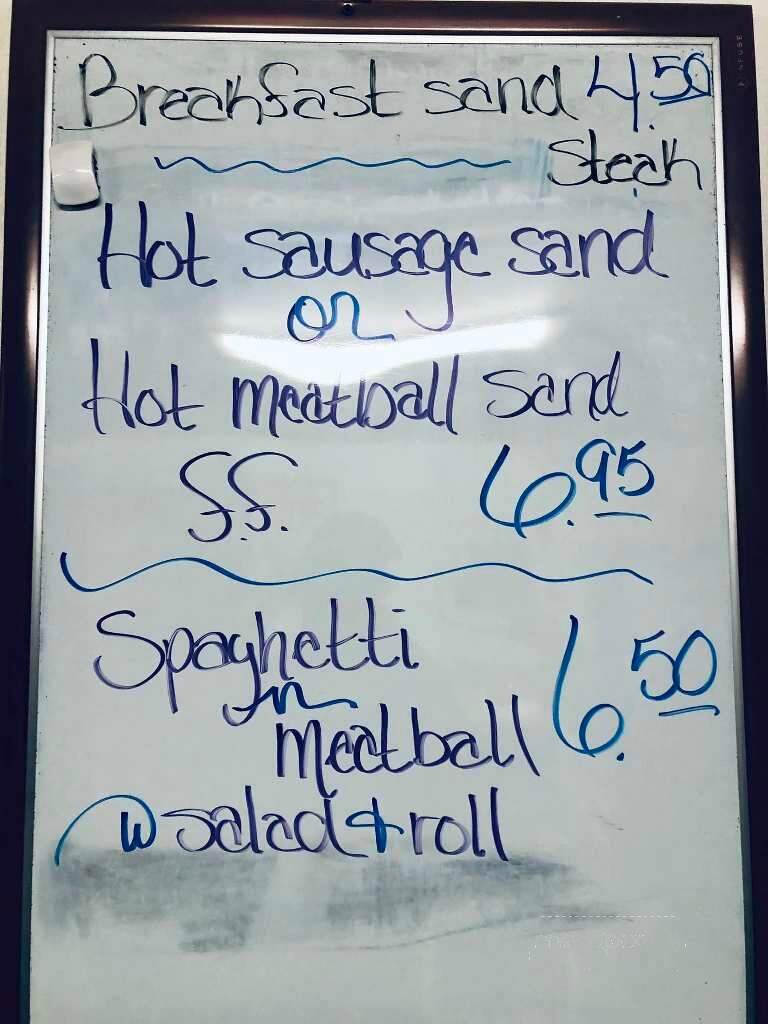 Breakfast sand 4.50
Steak
Hot sausage sand
or
Hot meatball sand
f.f. 6.95
Spaghetti 6.50
meatball
w salad & roll